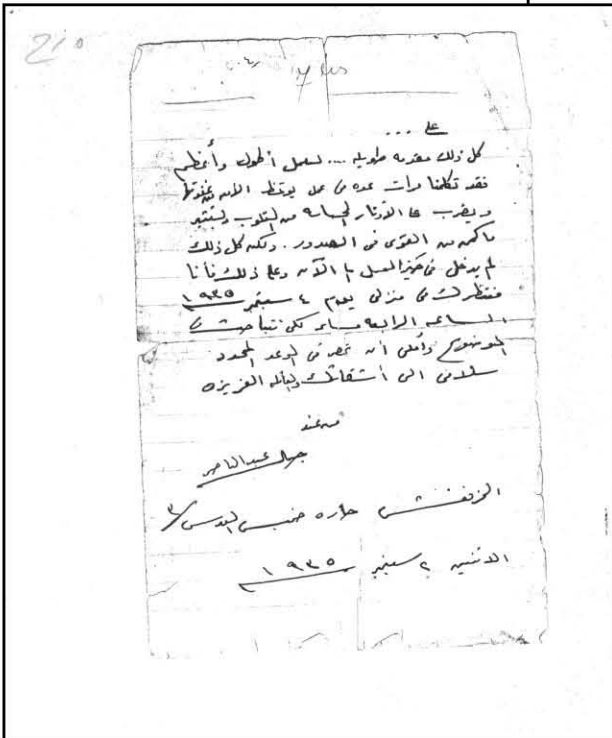 215
على ...
كل ذلك مقدمه طويله .... لعمل أطول وأعظم
فقد تكلمنا مرات عده فى عمل يوقظ الأمه من غفوتها
ويضرب على الأوتار الحساسه من القلوب ويستثير
ما كمن من القوى فى الصدور . ولكن كل ذلك
لم يدخل فى حيز العمل إلى الآن وعلى ذلك فأنا
منتظرك فى منزلى يوم ٤ سبتمبر ١٩٣٥
الساعه الرابعه مساء لكى نتباحث فى
الموضوع وأملى أن تحضر فى الوعد المحدد
سلامى الى أشقائك والعائله العزيزه
من عند
جمال عبدالناصر
الخرنفش حاره خميس العدس /٣
الاثنين ٢ سبتمبر ١٩٣٥